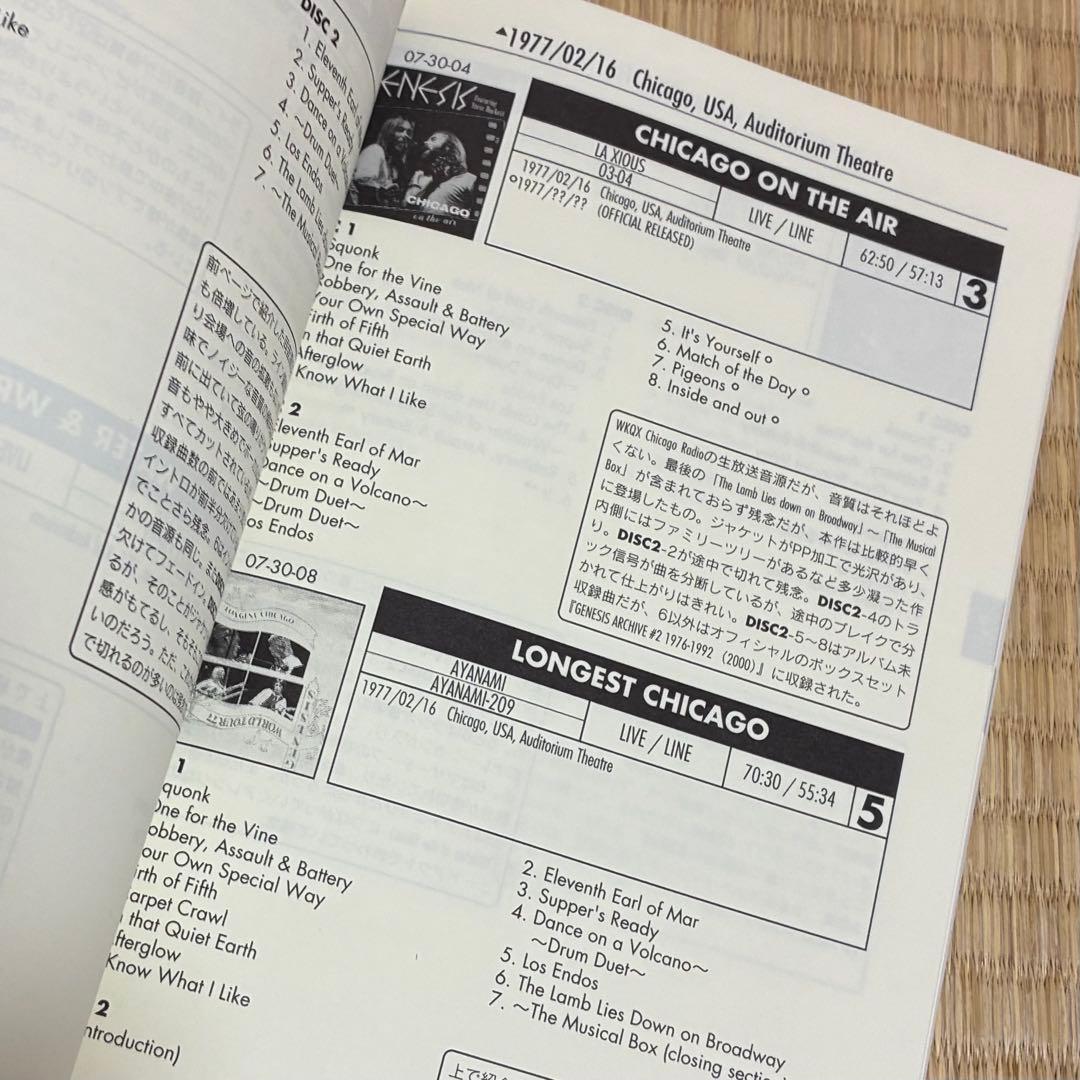 ike
DISC 2
1. Eleventh Earl
2. Supper's Rea
3. Dance on a
4. ～Drum Due
5. Los Endos
6. The Lamb Lies
7. ～The Musical
前ページで紹介した
も倍増している。
り会場への音の
味でノイジーな
前に出ていて
音もやや大きめで
すべてカットされてい
収録曲数の前では
イントロが前半
でことさら残念。
かの音源も同じ。
欠けてフェードイン。
るが、そのことが
感がもてるし、そもそ
いのだろう。ただ、
で切れるのが多いの
▲1977/02/16 Chicago, USA, Auditorium Theatre
07-30-04
GENESIS
Featuring
Steve Hackett
CHICAGO
on the air
CHICAGO ON THE AIR
LA XIOUS
03-04
1977/02/16 Chicago, USA, Auditorium Theatre
○1977/??/?? (OFFICIAL RELEASED)
LIVE / LINE
62:50 / 57:13
3
1
Squonk
One for the Vine
Robbery, Assault & Battery
Your Own Special Way
Firth of Fifth
In that Quiet Earth
Afterglow
Know What I Like
2
Eleventh Earl of Mar
Supper's Ready
Dance on a Volcano～
～Drum Duet～
～Drum Duet～
os Endos
5. It's Yourself ○
6. Match of the Day ○
7. Pigeons ○
8. Inside and out ○
WKQX Chicago Radioの生放送音源だが、音質はそれほどよ
くない。最後の「The Lamb Lies down on Broadway」～「The Musical
Box」が含まれておらず残念だが、本作は比較的早く
に登場したもの。ジャケットがPP加工で光沢があり、
内側にはファミリーツリーがあるなど多少凝った作
り。DISC2-2が途中で切れて残念。DISC2-4のトラ
ック信号が曲を分断しているが、途中のブレイクで分
かれて仕上がりはきれい。DISC2-5～8はアルバム未
収録曲だが、6以外はオフィシャルのボックスセット
『GENESIS ARCHIVE #2 1976-1992（2000）』に収録された。
07-30-08
LONGEST CHICAGO
WORLD TOUR 77
LONGEST CHICAGO
AYANAMI
AYANAMI-209
1977/02/16 Chicago, USA, Auditorium Theatre
LIVE / LINE
70:30 / 55:34
5
1
quonk
One for the Vine
obbery, Assault & Battery
our Own Special Way
irth of Fifth
arpet Crawl
that Quiet Earth
fterglow
Know What I Like
2
ntroduction)
2. Eleventh Earl of Mar
3. Supper's Ready
4. Dance on a Volcano～
～Drum Duet～
5. Los Endos
6. The Lamb Lies Down on Broadway
7. ～The Musical Box (closing sectio
上で紹